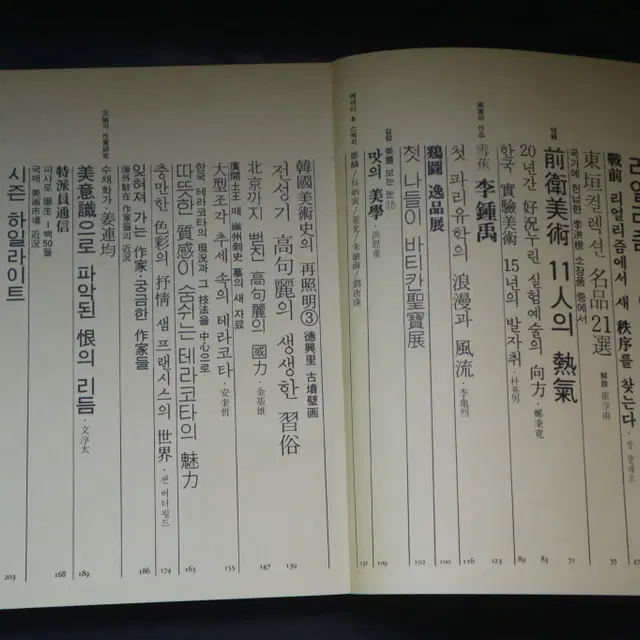 리얼리즘
戰前 리얼리즘에서 새 秩序를 찾는다
47
국가에 헌납한 李洪根 소장품 중에서
東垣컬렉션 名品 21選
解說 崔淳雨
55
特輯
前衛美術 11人의 熱氣
71
20년간 好況누린 실험예술의 向方·鄭秉寬
83
한국 實驗美術 15년의 발자취·朴
89
畵室의 作品
雪蕉 李鍾禹
123
첫 파리유학의 浪漫과 風流·李龜烈
116
鷄圖 逸品展
100
첫 나들이 바티칸聖寶展
102
美를 보는 눈⑰
맛의 美學·洪思重
109
에세이 & 스케치
131
韓國美術史의 再照明③ 德興里 古墳壁画
전성기 高句麗의 생생한 習俗
139
北京까지 뻗친 高句麗의 國力·金基雄
147
廣開土王 때 幽州刺史 墓의 새 자료
大型조각 추세 속의 테라코타·安奎哲
155
한국 테라코타의 現況과 그 技法을 中心으로
따뜻한 質感이 숨쉬는 테라코타의 魅力
163
충만한 色彩의 抒情 샘 프랜시스의 世界·잰 버터필드
174
잊혀져 가는 作家·궁금한 作家들
海外駐在 作家들의 近況
186
작가 作業研究
수채화가 姜連均
美意識으로 파악된 恨의 리듬·文淳太
189
特派員通信
168
국제 美術市場 近況
시즌 하일라이트
203